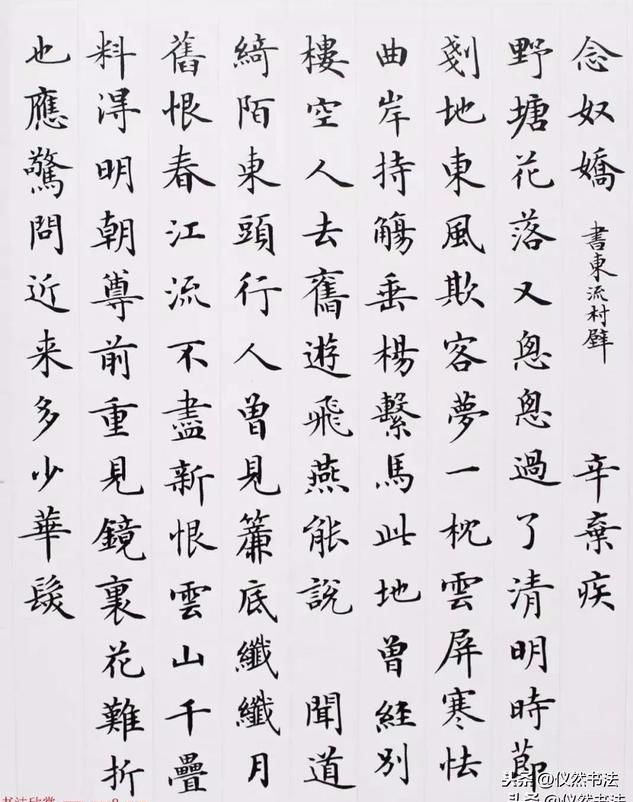 念奴嬌 書東流村壁 辛棄疾
野塘花落又悤悤過了清明時節
剗地東風欺客夢一枕雲屏寒怯
曲岸持觴垂楊繫馬此地曾經別
樓空人去舊遊飛燕能說 聞道
綺陌東頭行人曾見簾底纖纖月
舊恨春江流不盡新恨雲山千疊
料得明朝尊前重見鏡裏花難折
也應驚問近来多少華髮
头条@仪然书法
头条@仪然书法